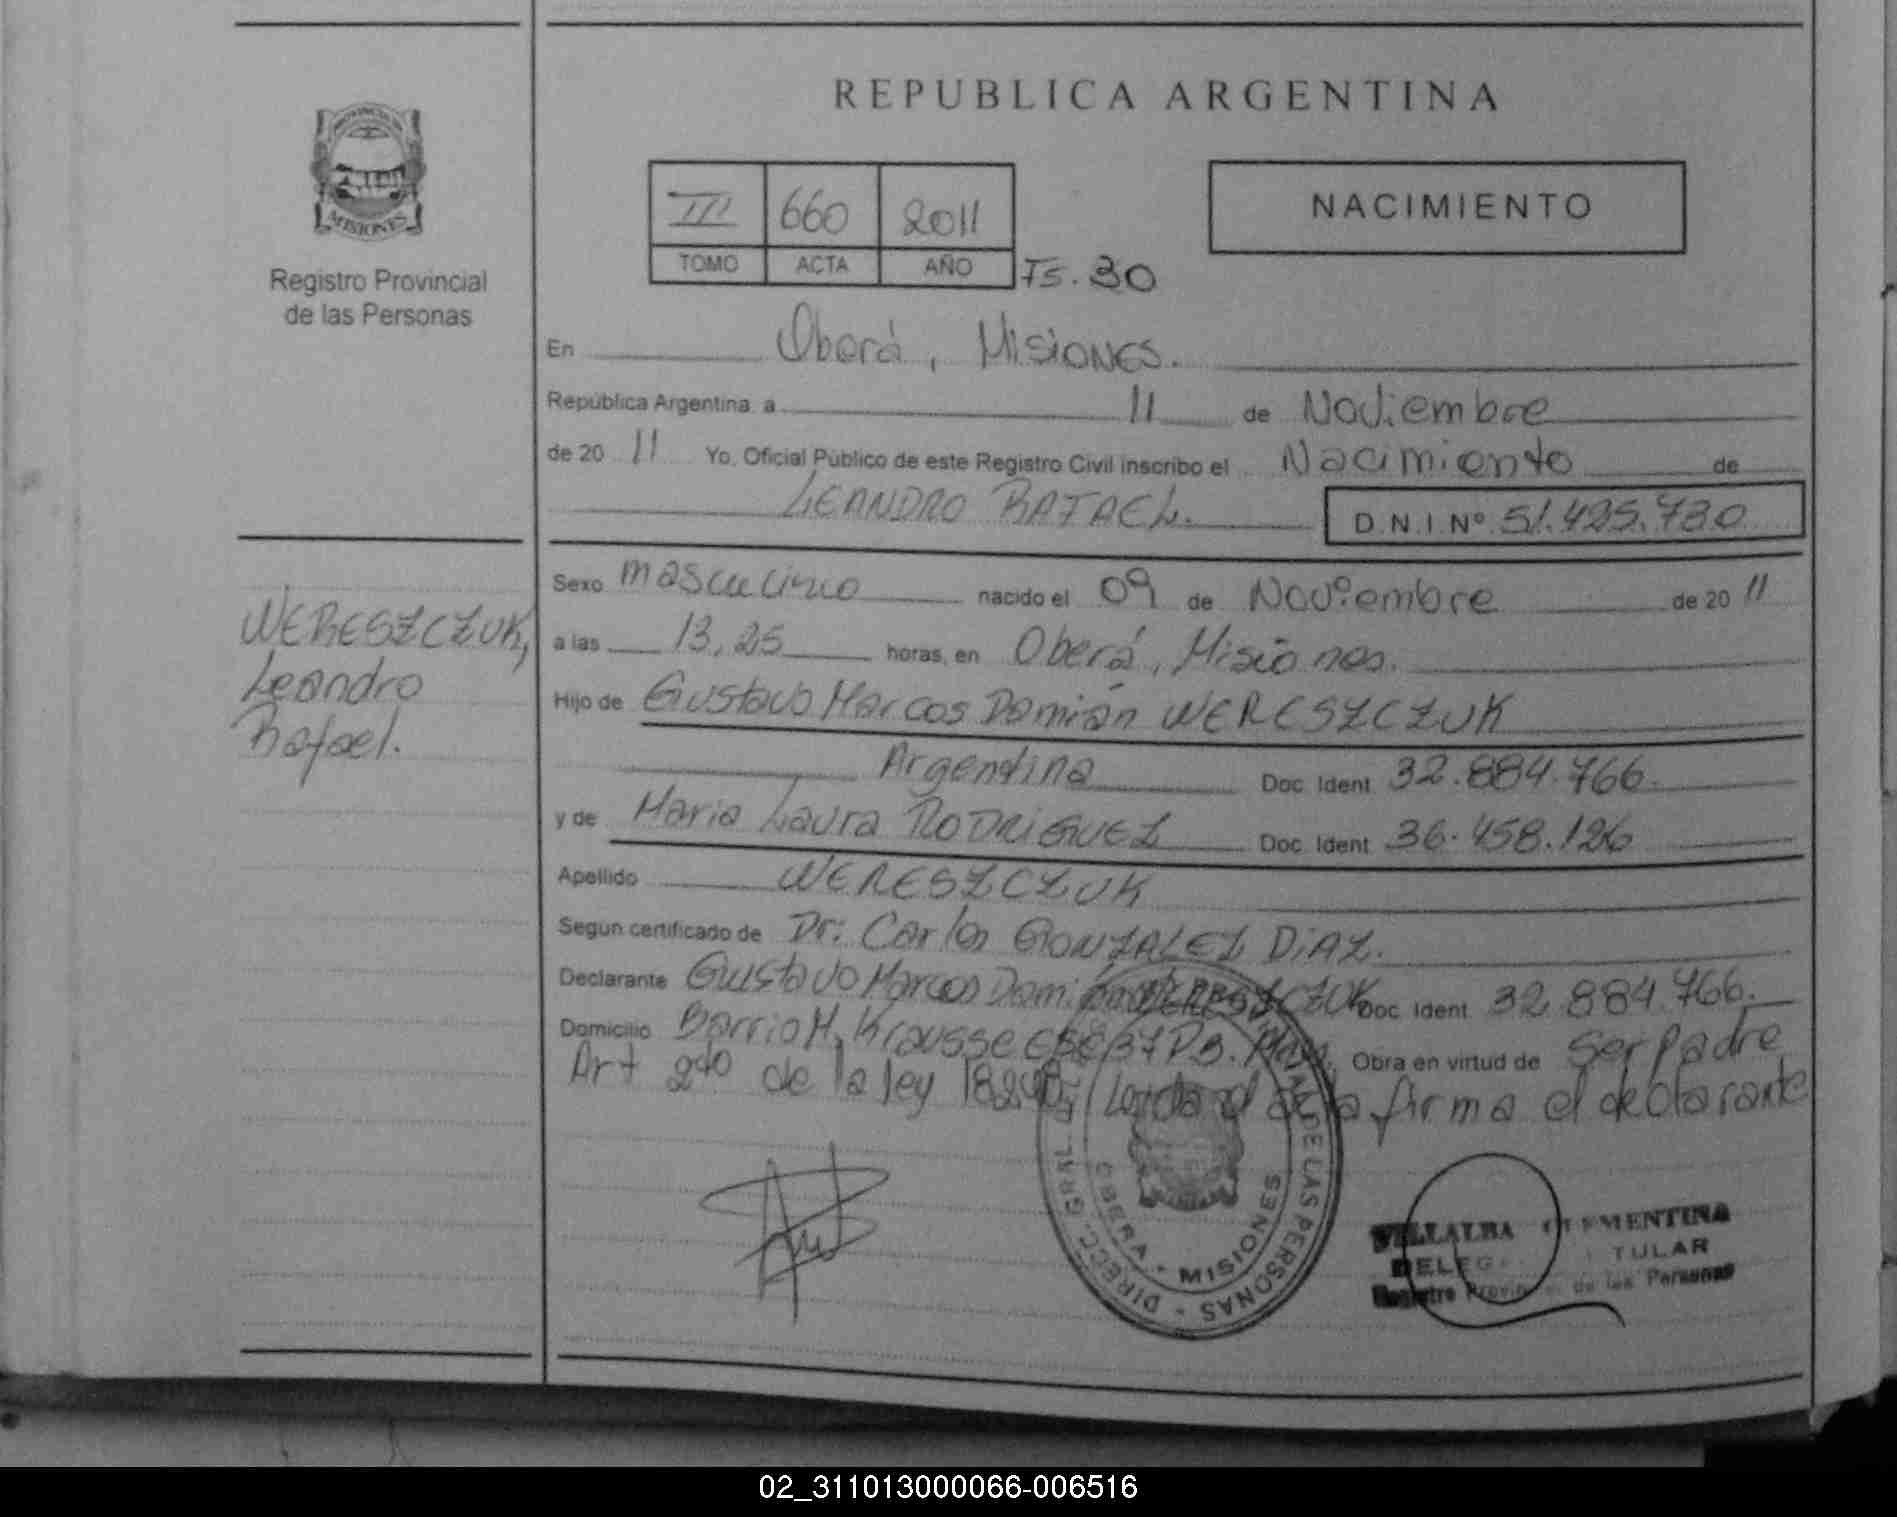 REPUBLICA ARGENTINA
PROVINCIA DE
MISIONES
Registro Provincial
de las Personas
III 660 2011
TOMO ACTA AÑO
Fs. 30
NACIMIENTO
En Oberá, Misiones.
República Argentina, a 11 de Noviembre
de 20 11 Yo, Oficial Público de este Registro Civil inscribo el Nacimiento de
LEANDRO RAFAEL.
D.N.I.Nº 51.425.730
WERESZCZUK,
Leandro
Rafael.
Sexo masculino nacido el 09 de Noviembre de 20 11
a las 13,25 horas, en Oberá, Misiones.
Hijo de Gustavo Marcos Damián WERESZCZUK
Argentina Doc. Ident. 32.884.766.
y de Maria Laura RODRIGUEZ Doc. Ident. 36.458.126
Apellido WERESZCZUK
Según certificado de Dr: Carlos GONZALEZ DiAZ.
Declarante Gustavo Marcos Damián WERESZCZUK Doc. Ident. 32.884.766.
Domicilio Barrio H. Krausse Obra en virtud de ser padre
Art 2do de la ley 18248, la firma el declarante
DIRECC. GRAL. DE LAS PERSONAS
OBERA - MISIONES
VILLALBA CLEMENTINA
TULAR
Registro Provincial de las Personas
02_311013000066-006516